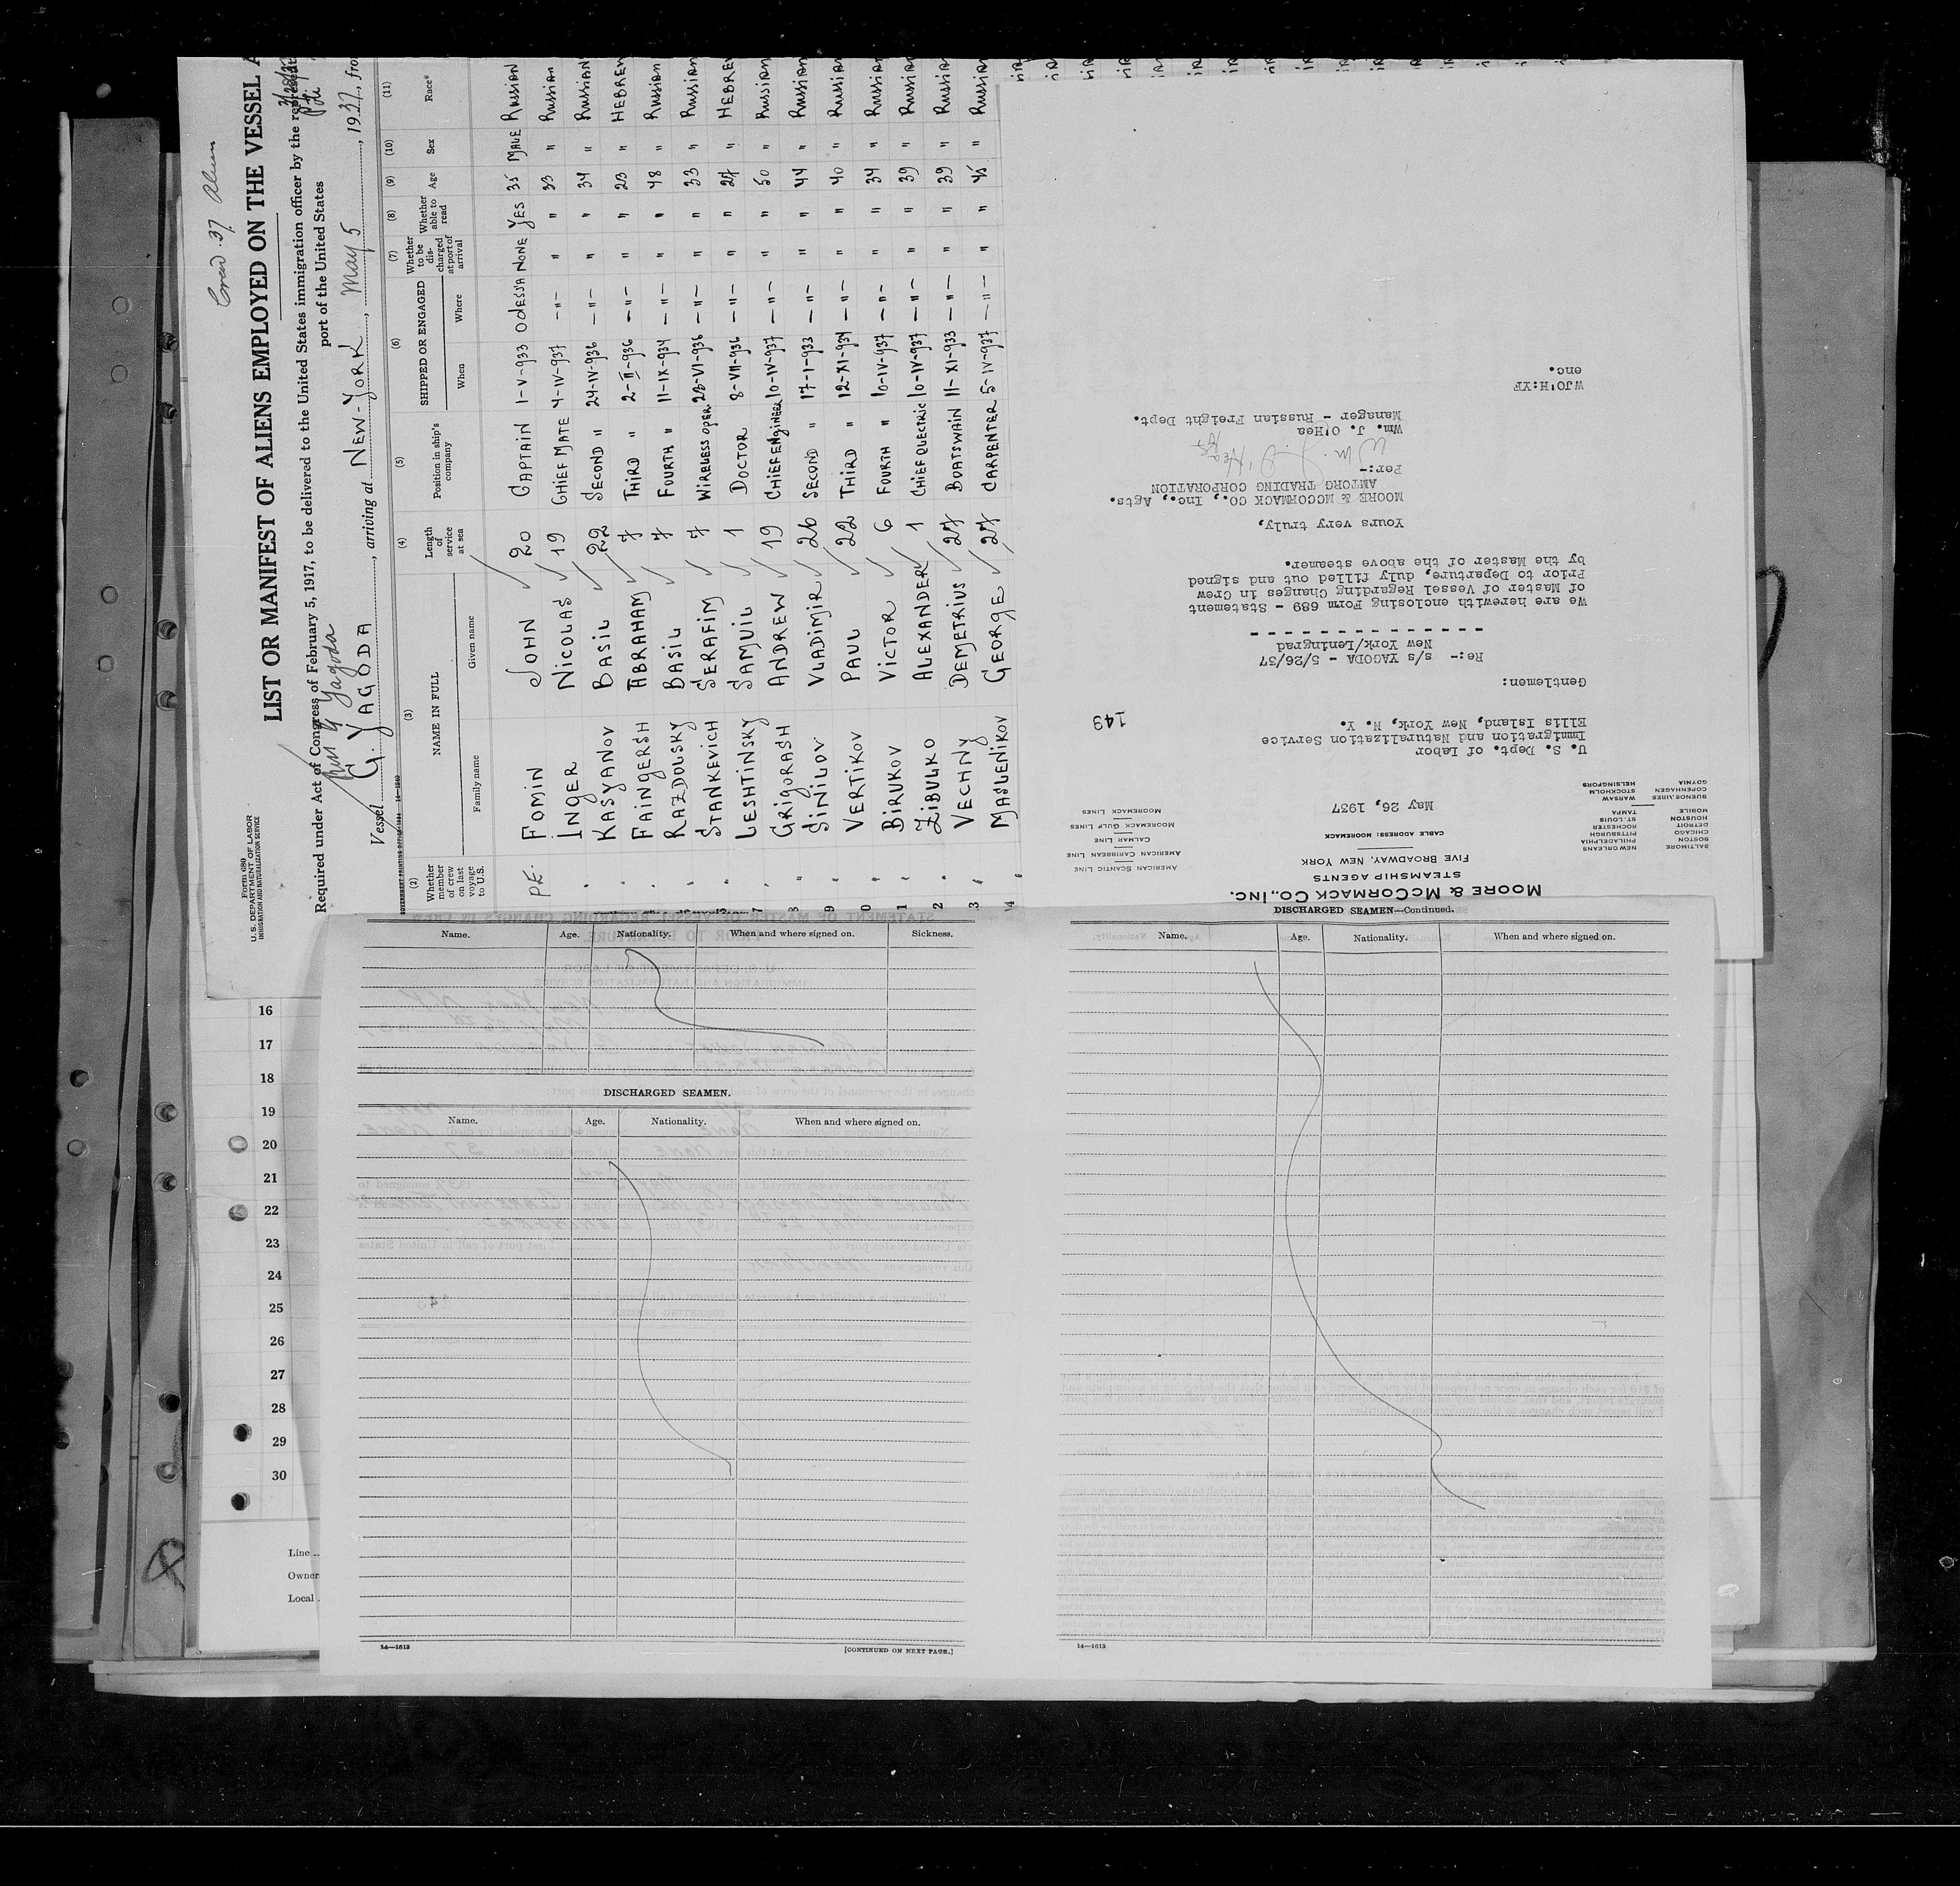 Crew 37 Aliens
LIST OR MANIFEST OF ALIENS EMPLOYED ON THE VESSEL A
Form 680
U. S. DEPARTMENT OF LABOR
IMMIGRATION AND NATURALIZATION SERVICE
Required under Act of Congress of February 5, 1917, to be delivered to the United States immigration officer by the
port of the United States
Yagoda
Vessel G. YAGODA, arriving at NEW-YORK, May 5, 1937, from
(2) (3) (4) (5) (6) (7) (8) (9) (10) (11)
Whether member of crew on last voyage to U.S. NAME IN FULL Family name Given name Length of service at sea Position in ship's company SHIPPED OR ENGAGED When Where Whether to be discharged at port of arrival Whether able to read Age Sex Race*
FOMIN JOHN 20 CAPTAIN 1-V-933 ODESSA NONE YES 35 MALE RUSSIAN
" INGER NICOLAS 19 CHIEF MATE 4-IV-937 -"- " " 33 " RUSSIAN
" KASYANOV BASIL 22 SECOND " 24-IV-936 -"- " " 34 " RUSSIAN
" FAINGERSH ABRAHAM 7 THIRD " 2-II-936 -"- " " 23 " HEBREW
" RAZDOLSKY BASIL 7 FOURTH " 11-IX-934 -"- " " 48 " RUSSIAN
" STANKEVICH SERAFIM 7 WIRELESS OPER. 28-VI-936 -"- " " 33 " RUSSIAN
" LESHTINSKY SAMUIL 1 DOCTOR 8-VII-936 -"- " " 27 " HEBREW
7 " GRIGORASH ANDREW 19 CHIEF ENGINEER 10-IV-937 -"- " " 50 " RUSSIAN
8 " SINILOV VLADIMIR 26 SECOND " 17-I-933 -"- " " 44 " RUSSIAN
9 " VERTIKOV PAUL 22 THIRD " 12-XI-934 -"- " " 40 " RUSSIAN
0 " BIRUKOV VICTOR 6 FOURTH " 10-IV-937 -"- " " 34 " RUSSIAN
1 " ZIBULKO ALEXANDER 1 CHIEF ELECTRIC 10-IV-937 -"- " " 39 " RUSSIAN
2 " VECHNY DEMETRIUS 27 BOATSWAIN 11-XI-933 -"- " " 39 " RUSSIAN
3 " MASLENIKOV GEORGE 27 CARPENTER 5-IV-937 -"- " " 45 " RUSSIAN
14
MOORE & MCCORMACK CO., INC.
STEAMSHIP AGENTS
FIVE BROADWAY, NEW YORK
CABLE ADDRESS: MOOREMACK
BALTIMORE
BOSTON
CHICAGO
DETROIT
HOUSTON
MOBILE
NEW ORLEANS
PHILADELPHIA
PITTSBURGH
ROCHESTER
ST. LOUIS
TAMPA
BUENOS AIRES
COPENHAGEN
GDYNIA
WARSAW
STOCKHOLM
HELSINGFORS
AMERICAN SCANTIC LINE
AMERICAN CARIBBEAN LINE
CALMAR LINE
MOOREMACK GULF LINES
MOOREMACK LINES
May 26, 1937
U. S. Dept. of Labor
Immigration and Naturalization Service
Ellis Island, New York, N. Y.
149
Gentlemen:
Re:- s/s YAGODA - 5/26/37
New York/Leningrad
We are herewith enclosing Form 689 - Statement
of Master of Vessel Regarding Changes in Crew
Prior to Departure, duly filled out and signed
by the Master of the above steamer.
Yours very truly,
MOORE & MCCORMACK CO., Inc., Agts.
AMTORG TRADING CORPORATION
Per:-
Wm. J. O'Hea
Wm. J. O'Hea
Manager - Russian Freight Dept.
WJO'H:YF
enc.
Name. Age. Nationality. When and where signed on. Sickness.
DISCHARGED SEAMEN.
Name. Age. Nationality. When and where signed on.
14—1613
[CONTINUED ON NEXT PAGE.]
DISCHARGED SEAMEN—Continued.
Name. Age. Nationality. When and where signed on.
14—1613
16
17
18
19
20
21
22
23
24
25
26
27
28
29
30
Line
Owner
Local